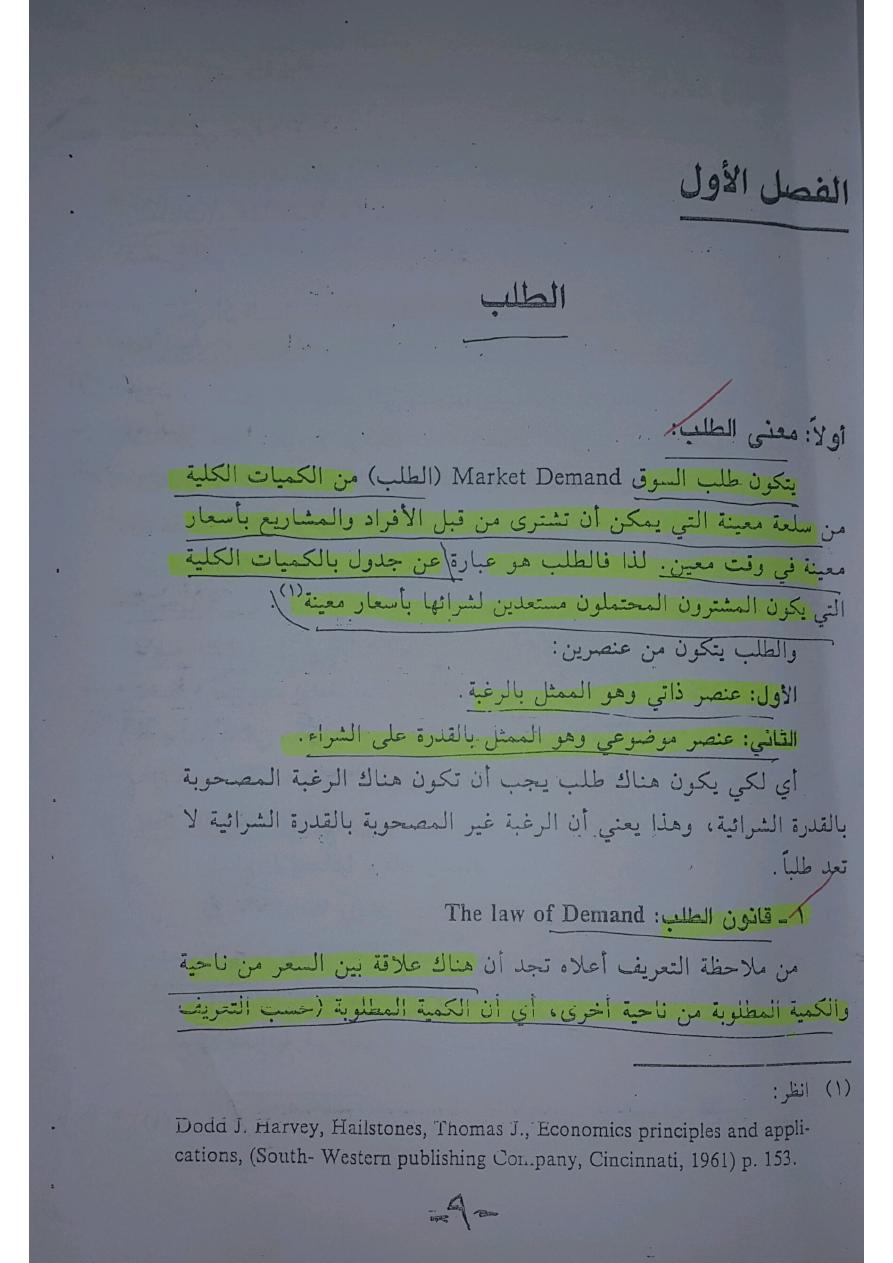 الفصل الأول
الطلب
أولاً: معنى الطلب:
يتكون طلب السوق Market Demand (الطلب) من الكميات الكلية
من سلعة معينة التي يمكن أن تشترى من قبل الأفراد والمشاريع بأسعار
معينة في وقت معين. لذا فالطلب هو عبارة عن جدول بالكميات الكلية
التي يكون المشترون المحتملون مستعدين لشرائها بأسعار معينة(١).
والطلب يتكون من عنصرين:
الأول: عنصر ذاتي وهو الممثل بالرغبة.
الثاني: عنصر موضوعي وهو الممثل بالقدرة على الشراء.
أي لكي يكون هناك طلب يجب أن تكون هناك الرغبة المصحوبة
بالقدرة الشرائية، وهذا يعني أن الرغبة غير المصحوبة بالقدرة الشرائية لا
تعد طلباً.
١ - قانون الطلب: The law of Demand
من ملاحظة التعريف أعلاه تجد أن هناك علاقة بين السعر من ناحية
والكمية المطلوبة من ناحية أخرى، أي أن الكمية المطلوبة (حسب التعريف
(١) انظر:
Dodd J. Harvey, Hailstones, Thomas J., Economics principles and appli-
cations, (South- Western publishing Company, Cincinnati, 1961) p. 153.
- ٩ -